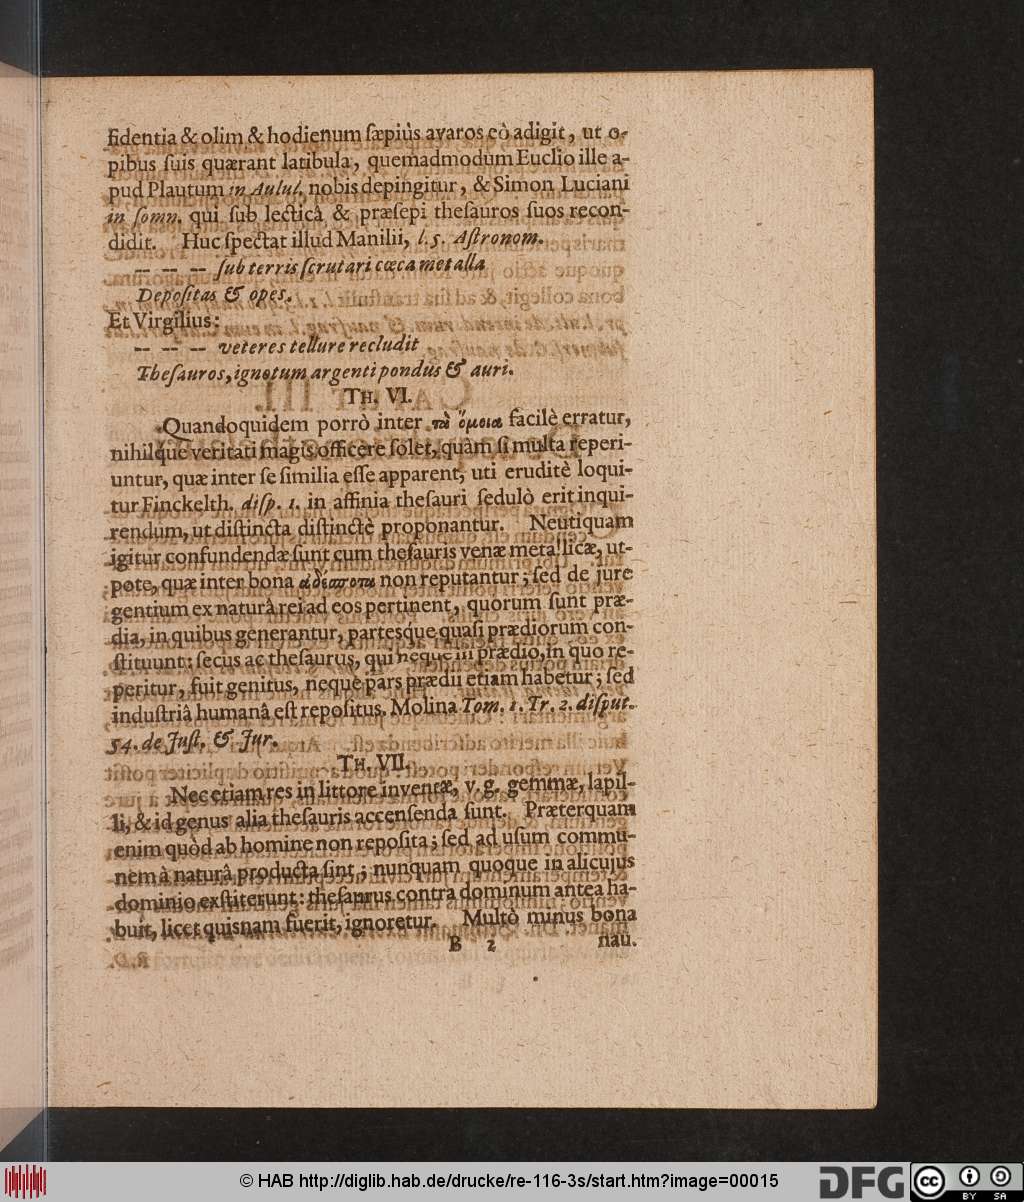 fidentia & olim & hodienum sæpiùs avaros eò adigit, ut o-
pibus suis quærant latibula, quemadmodum Euclio ille a-
pud Plautum in Aulul. nobis depingitur, & Simon Luciani
in somn. qui sub lecticâ & præsepi thesauros suos recon-
didit. Huc spectat illud Manilii, l. 5. Astronom.
-- -- -- sub terris scrutari cœca metalla
Depositas & opes.
Et Virgilius:
-- -- -- veteres tellure recludit
Thesauros, ignotum argenti pondus & auri.
TH. VI.
Quandoquidem porrò inter τὰ ὅμοια facilè erratur,
nihilque veritati magis officere solet, quàm si multa reperi-
untur, quæ inter se similia esse apparent, uti eruditè loqui-
tur Finckelth. disp. 1. in affinia thesauri sedulò erit inqui-
rendum, ut distincta distinctè proponantur. Neutiquam
igitur confundendæ sunt cum thesauris venæ metallicæ, ut-
pote, quæ inter bona ἀδέσποτα non reputantur; sed de jure
gentium ex naturâ rei ad eos pertinent, quorum sunt præ-
dia, in quibus generantur, partesque quasi prædiorum con-
stituunt: secus ac thesaurus, qui neque in prædio, in quo re-
peritur, fuit genitus, neque pars prædii etiam habetur; sed
industriâ humanâ est repositus. Molina Tom. 1. Tr. 2. disput.
54. de Just. & Jur.
TH. VII.
Nec etiam res in littore inventæ, v. g. gemmæ, lapil-
li, & id genus alia thesauris accensenda sunt. Præterquam
enim quòd ab homine non reposita; sed ad usum commu-
nem à naturâ producta sint; nunquam quoque in alicujus
dominio exstiterunt: thesaurus contra dominum antea ha-
buit, licet quisnam fuerit, ignoretur. Multò minus bona
B 2 nau.
© HAB http://diglib.hab.de/drucke/re-116-3s/start.htm?image=00015
DFG
cc
BY SA